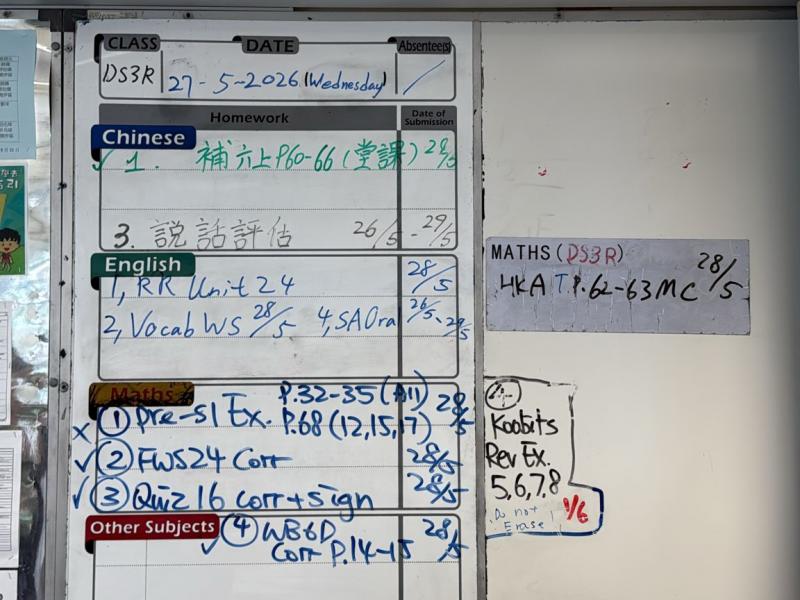 CLASS DATE Absentee(s)
DS3R 27-5-2026 (Wednesday) /
Homework Date of Submission
Chinese
✓ 1. 補六上P60-66 (堂課) 28/5
3. 説話評估 26/5 - 29/5
English
1, RR Unit 24 28/5
2, Vocab WS 28/5 4, SA Oral 26/5 - 29/5
Maths P.32-35 (All)
× ① Pre-S1 Ex. P.68 (12,15,17) 28/5
✓ ② FWS24 Corr 28/5
✓ ③ Quiz 16 corr + sign 28/5
Other Subjects ✓ ④ WB6D 28/5
Corr P.14-15
MATHS (DS3R) 28/5
HKAT P.62-63 MC
Koobits
Rev Ex.
5,6,7,8
Do not 1/6
Erase